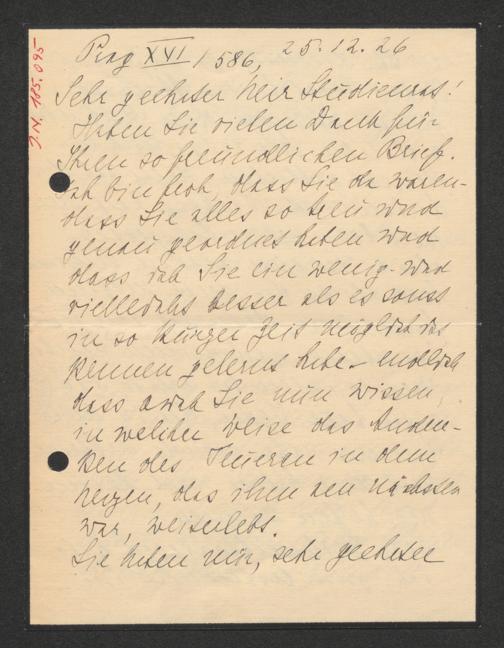 J.N. 185.095
Prag XVI / 586, 25.12.26
Sehr geehrter Herr Studienrat!
Haben Sie vielen Dank für
Ihren so freundlichen Brief.
Ich bin froh, dass Sie da waren-
dass Sie alles so treu und
genau geordnet haben und
dass ich Sie ein wenig- und
vielleicht besser als es sonst
in so kurzer Zeit möglich ist
kennen gelernt habe- endlich
dass auch Sie nun wissen,
in welcher Weise das Anden-
ken des Teueren in dem
herzen, das ihm am nächsten
war, weiterlebt.
Sie haben mir, sehr geehrter